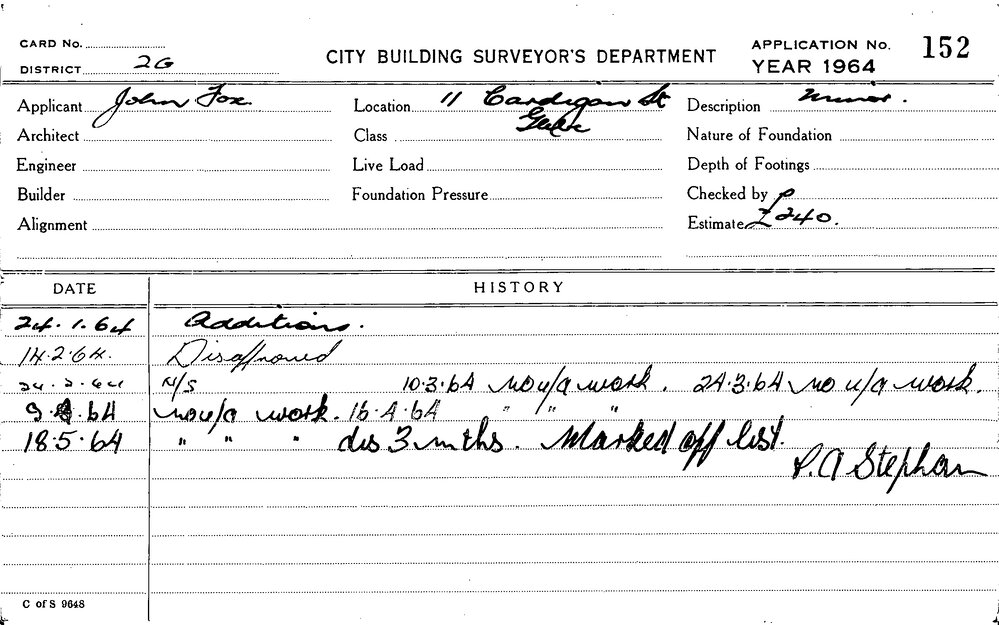 CARD No.
DISTRICT 2G
CITY BUILDING SURVEYOR'S DEPARTMENT
APPLICATION No. 152
YEAR 1964
Applicant John Fox.
Location 11 Cardigan St
Glebe
Description Minor.
Architect
Class
Nature of Foundation
Engineer
Live Load
Depth of Footings
Builder
Foundation Pressure
Checked by P
Alignment
Estimate £240.
DATE HISTORY
24.1.64 Additions.
14.2.64. Disapproved
24.2.64 N/S 10.3.64 no u/a work. 24.3.64 no u/a work.
9.4.64 no u/a work. 16.4.64 " " "
18.5.64 " " " dis 3 mths. Marked off list.
P.A Stephan
C of S 9648